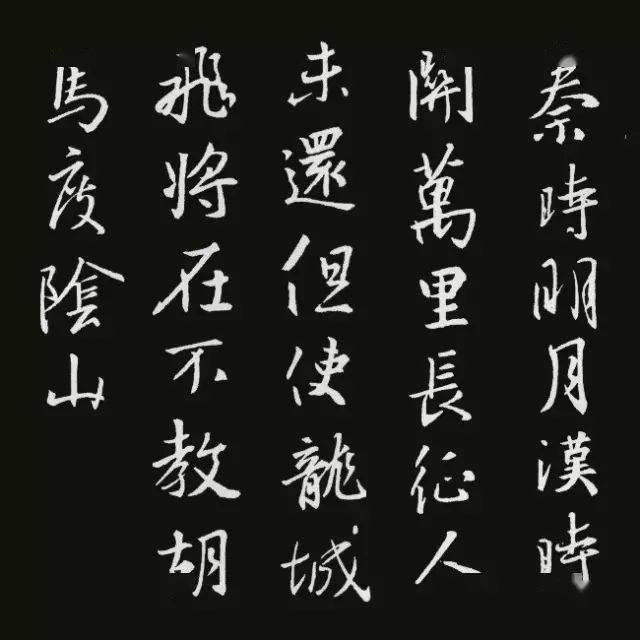 秦時明月漢時
関萬里長征人
未還但使龍城
飛将在不教胡
馬度陰山